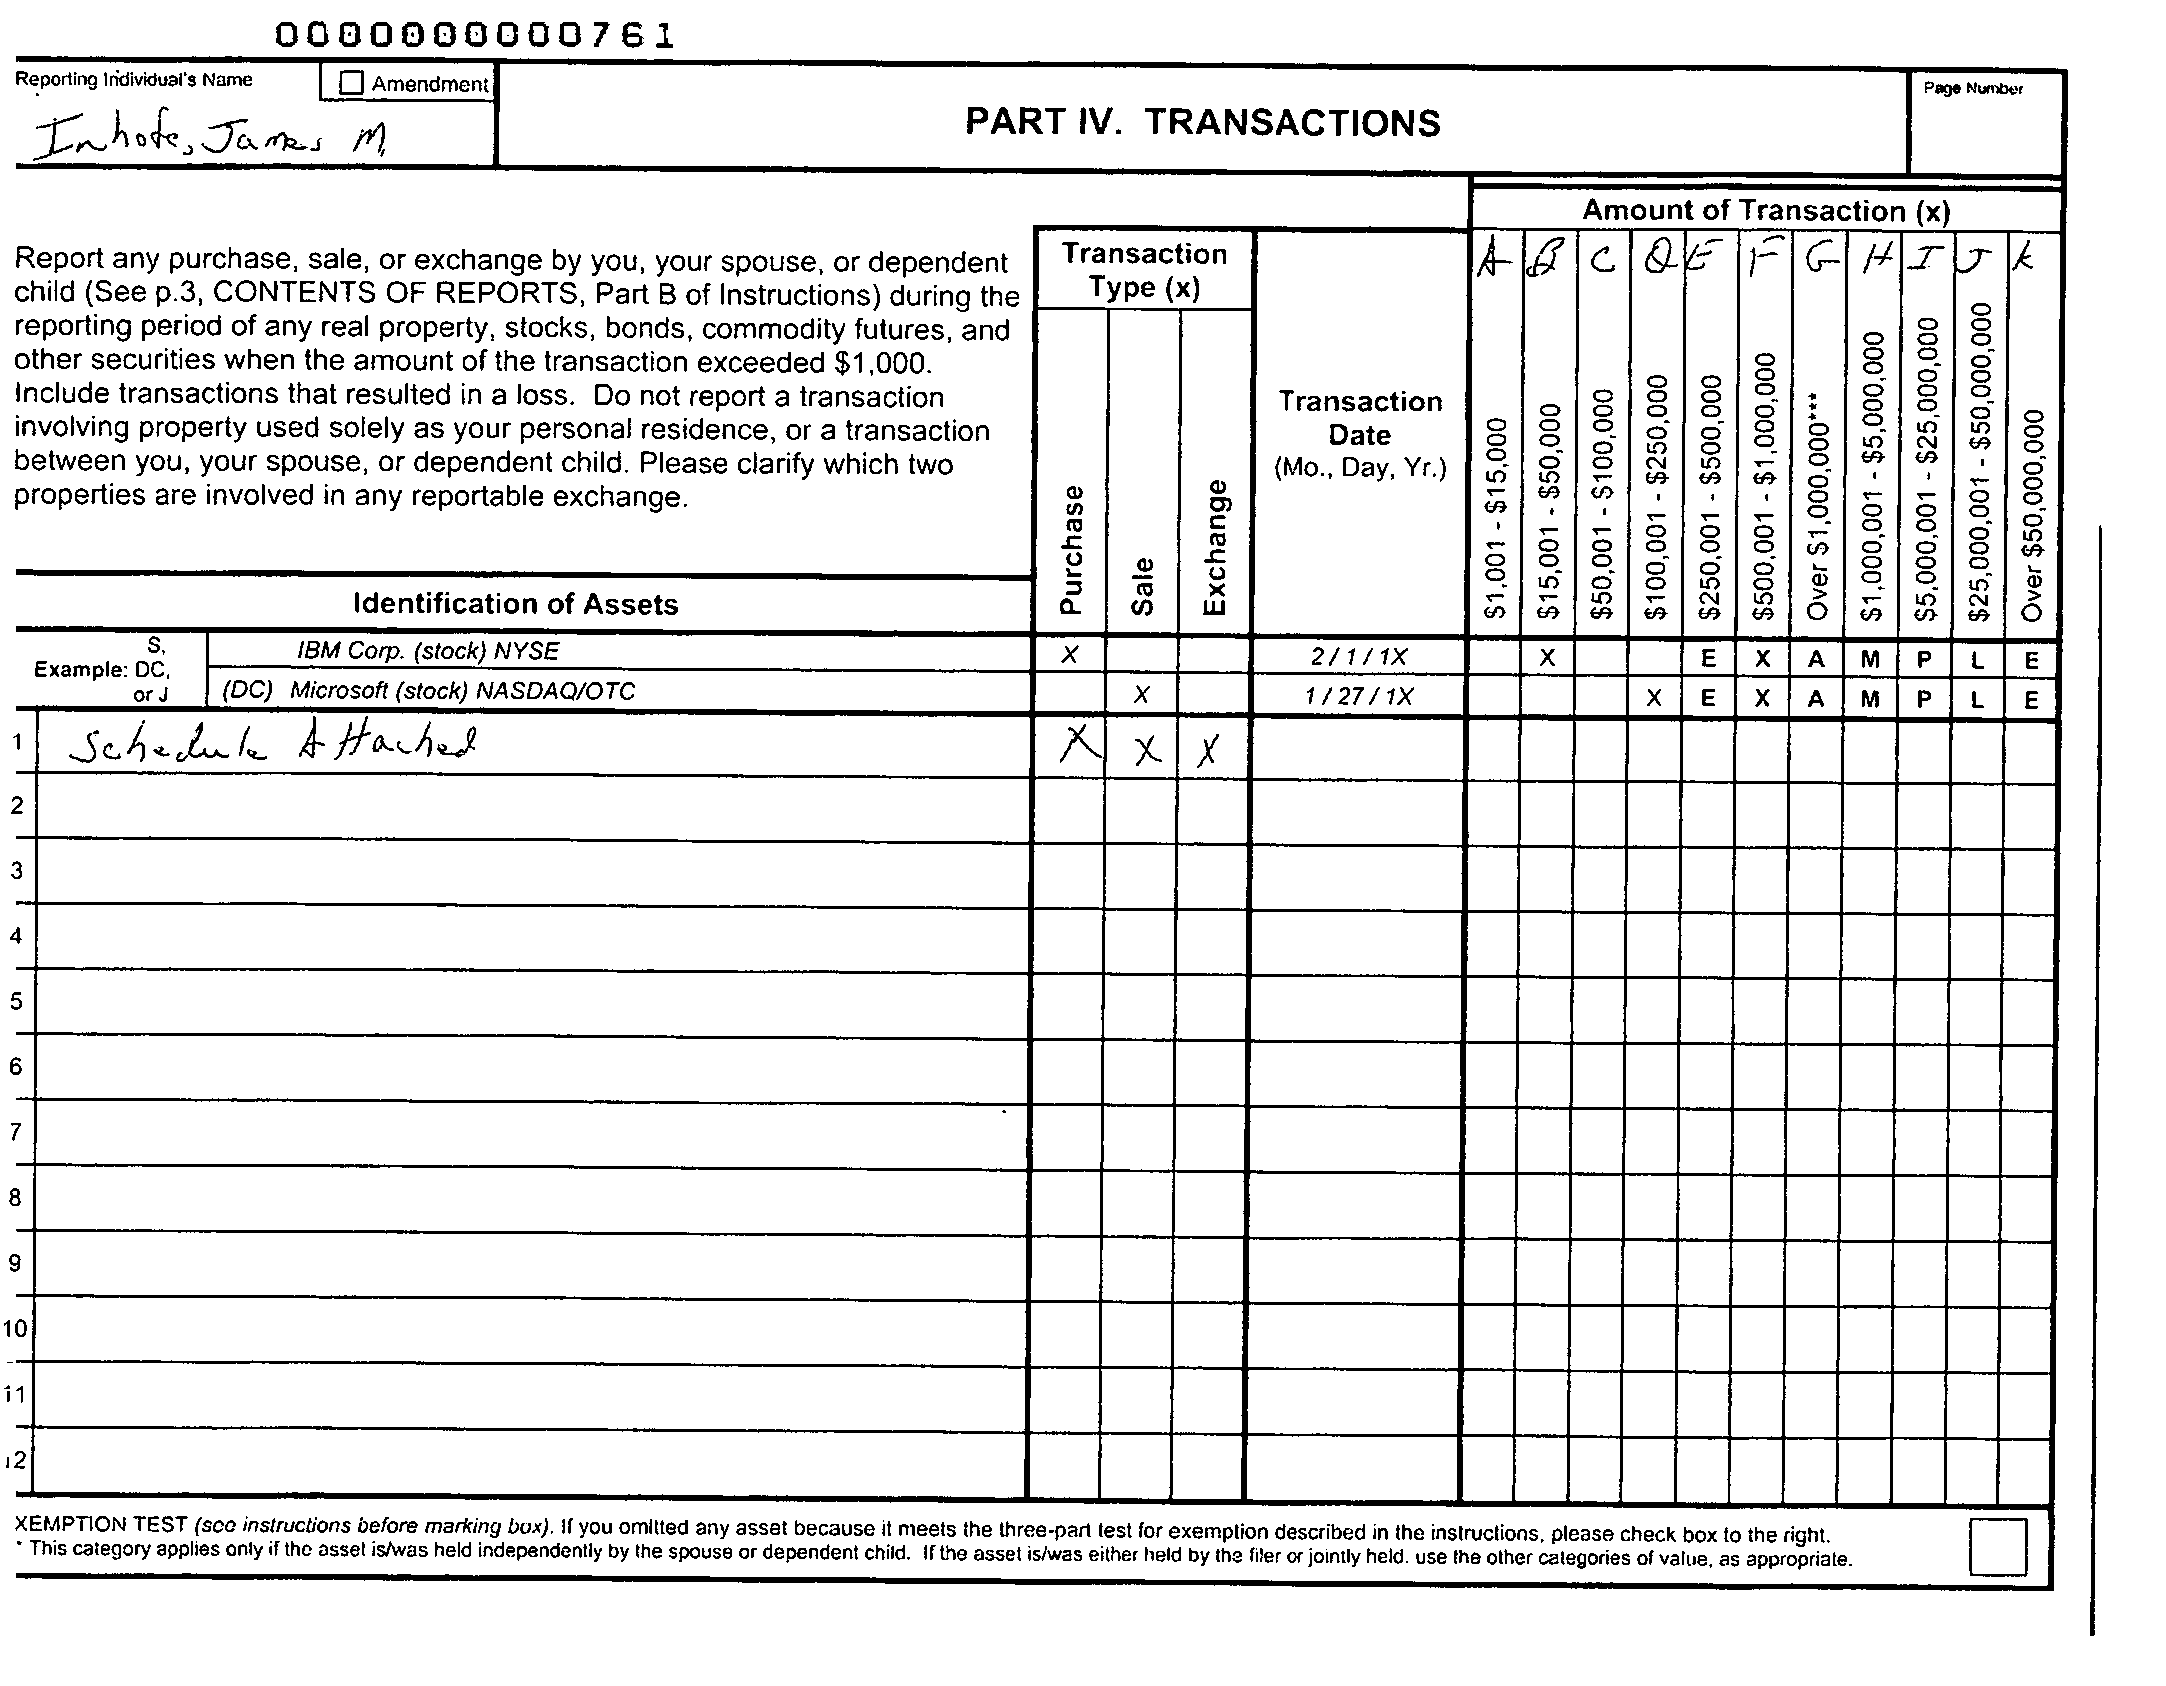 0000000000761
Reporting Individual's Name
Amendment
Inhofe, James M.
PART IV. TRANSACTIONS
Page Number
Report any purchase, sale, or exchange by you, your spouse, or dependent
child (See p.3, CONTENTS OF REPORTS, Part B of Instructions) during the
reporting period of any real property, stocks, bonds, commodity futures, and
other securities when the amount of the transaction exceeded $1,000.
Include transactions that resulted in a loss. Do not report a transaction
involving property used solely as your personal residence, or a transaction
between you, your spouse, or dependent child. Please clarify which two
properties are involved in any reportable exchange.
Identification of Assets
Transaction
Type (x)
Purchase
Sale
Exchange
Transaction
Date
(Mo., Day, Yr.)
Amount of Transaction (x)
A B C D E F G H I J K
$1,001 - $15,000
$15,001 - $50,000
$50,001 - $100,000
$100,001 - $250,000
$250,001 - $500,000
$500,001 - $1,000,000
Over $1,000,000***
$1,000,001 - $5,000,000
$5,000,001 - $25,000,000
$25,000,001 - $50,000,000
Over $50,000,000
S,
Example: DC,
or J
IBM Corp. (stock) NYSE X 2 / 1 / 1X X E X A M P L E
(DC) Microsoft (stock) NASDAQ/OTC X 1 / 27 / 1X X E X A M P L E
1 Schedule Attached X X X
2
3
4
5
6
7
8
9
10
11
12
XEMPTION TEST (see instructions before marking box). If you omitted any asset because it meets the three-part test for exemption described in the instructions, please check box to the right.
* This category applies only if the asset is/was held independently by the spouse or dependent child. If the asset is/was either held by the filer or jointly held, use the other categories of value, as appropriate.